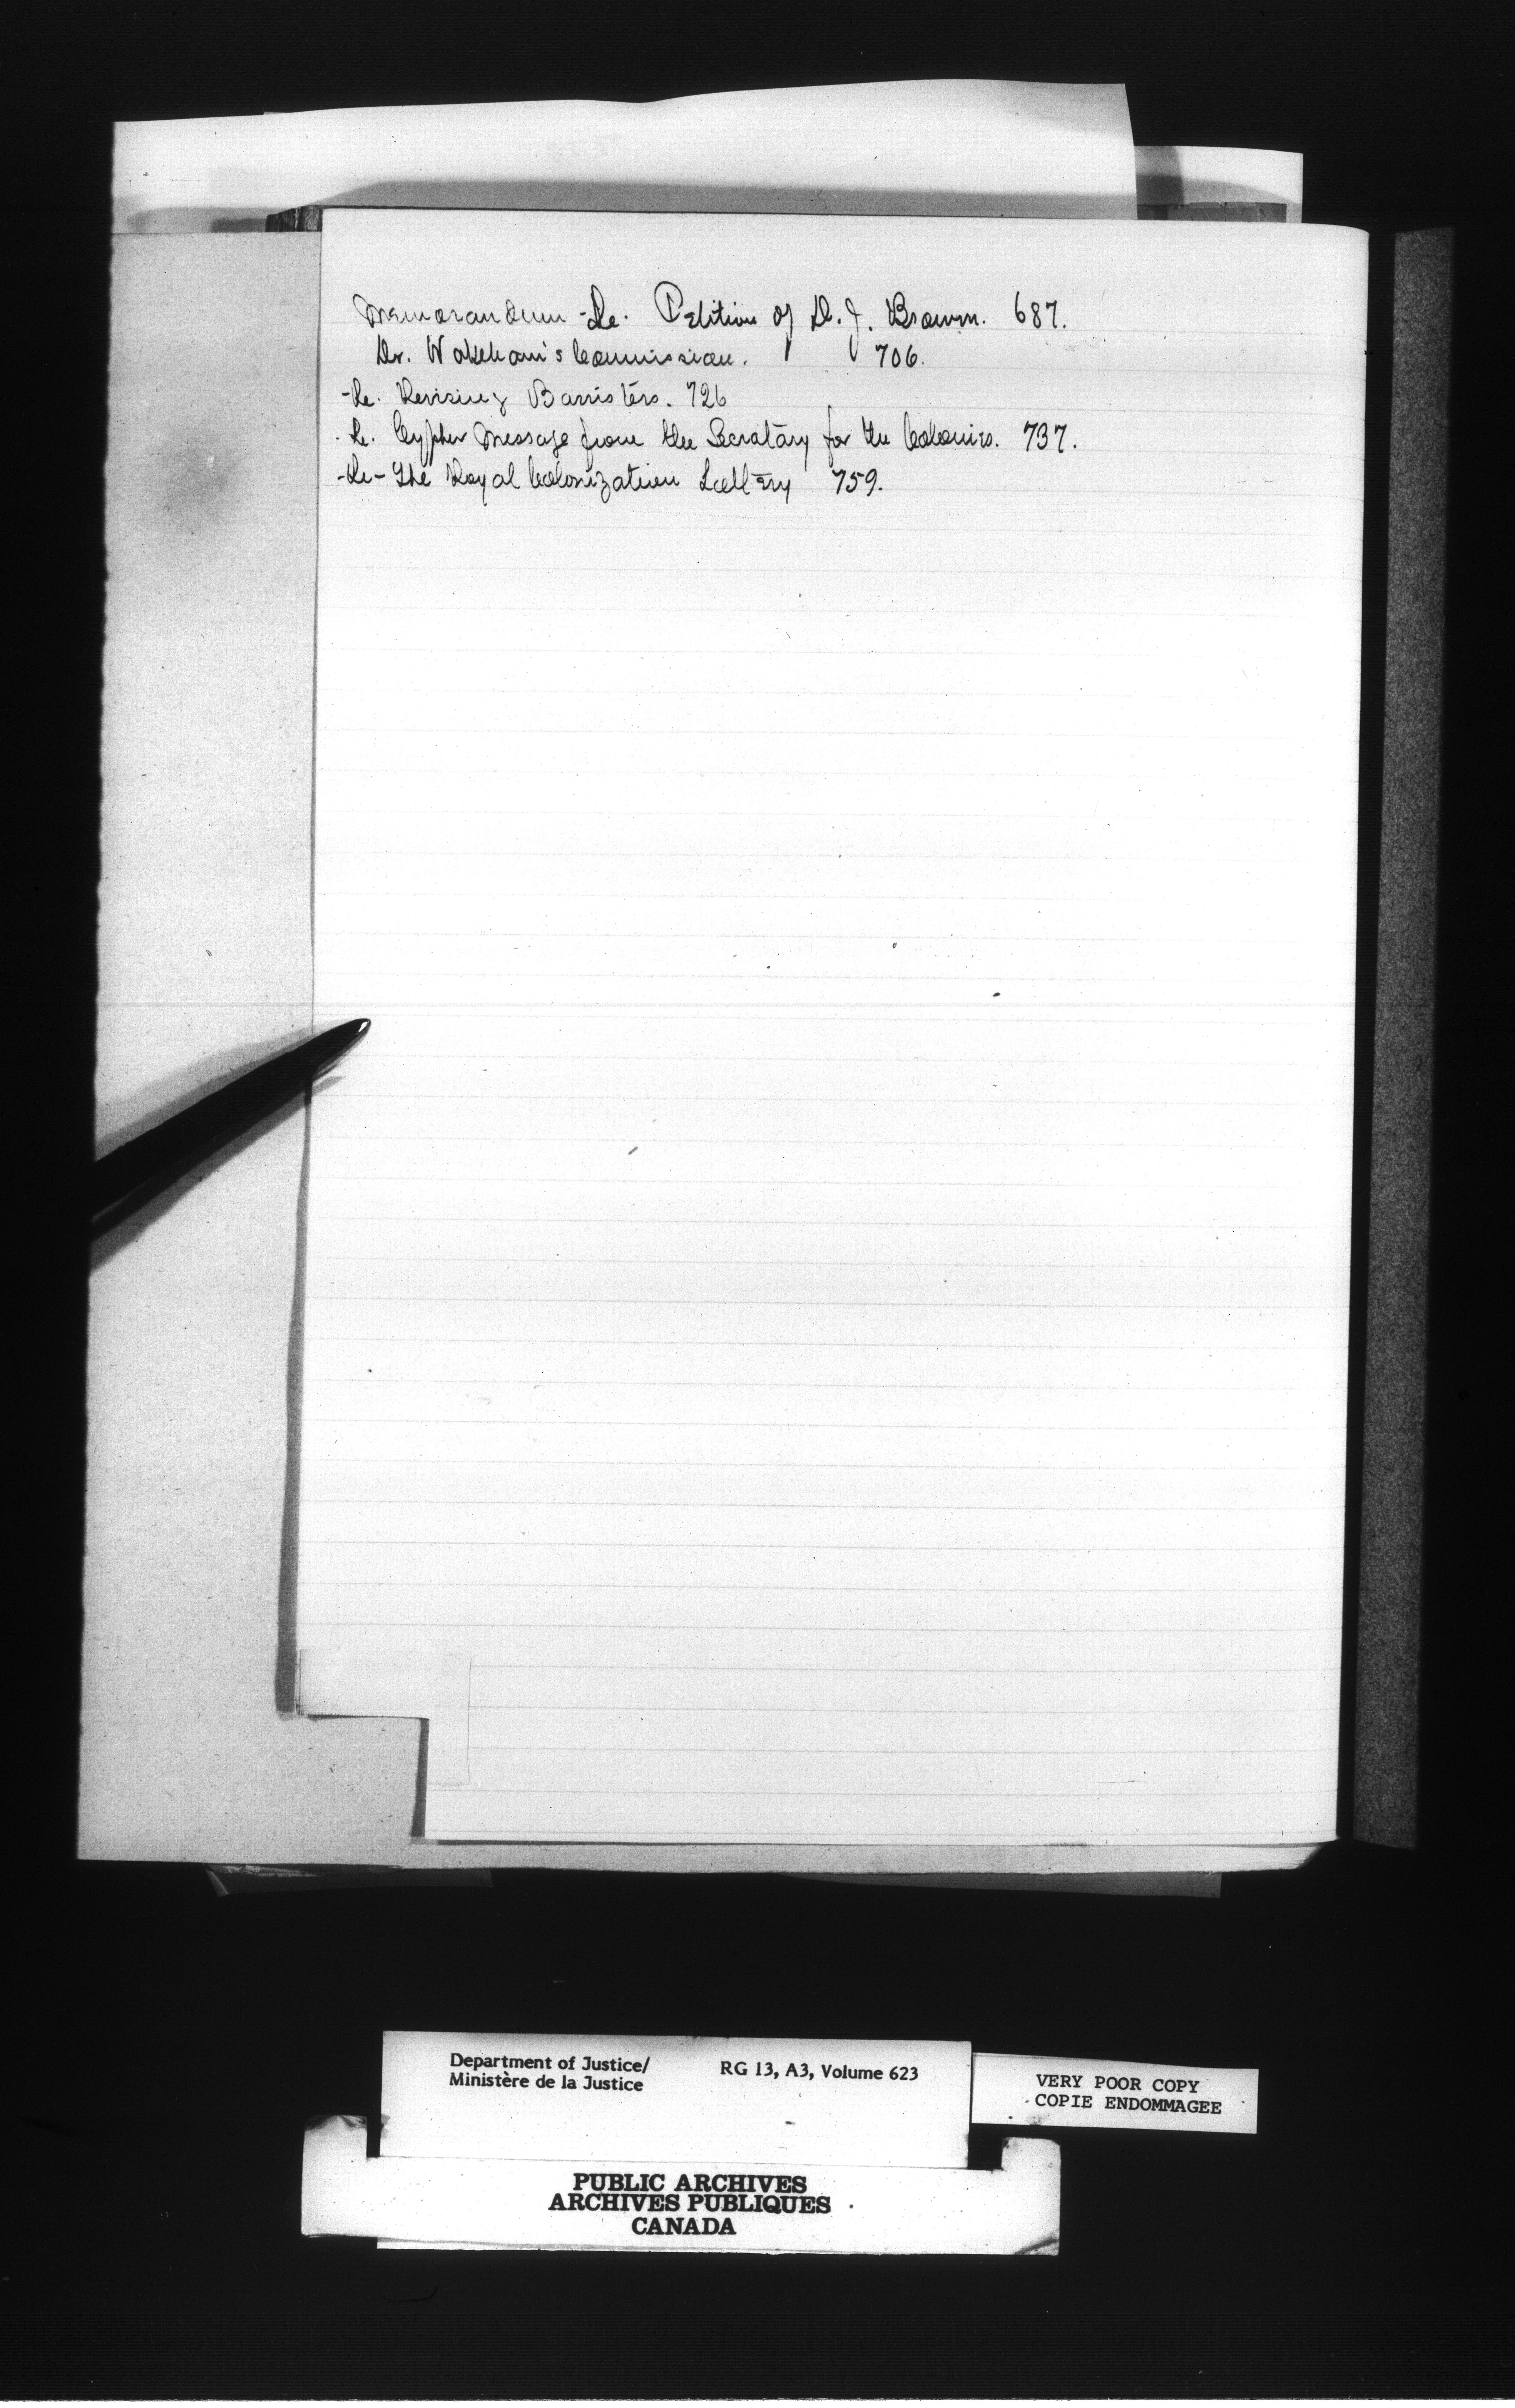 Memorandum - Re. Petition of D. J. Brown. 687.
Dr. Wakeham's Commission. 706.
- Re. Revising Barristers. 726
- Re. Cypher Message from the Secretary for the Colonies. 737.
- Re - The Royal Colonization Lottery 759.
Department of Justice/
Ministère de la Justice
RG 13, A3, Volume 623
VERY POOR COPY
COPIE ENDOMMAGEE
PUBLIC ARCHIVES
ARCHIVES PUBLIQUES
CANADA